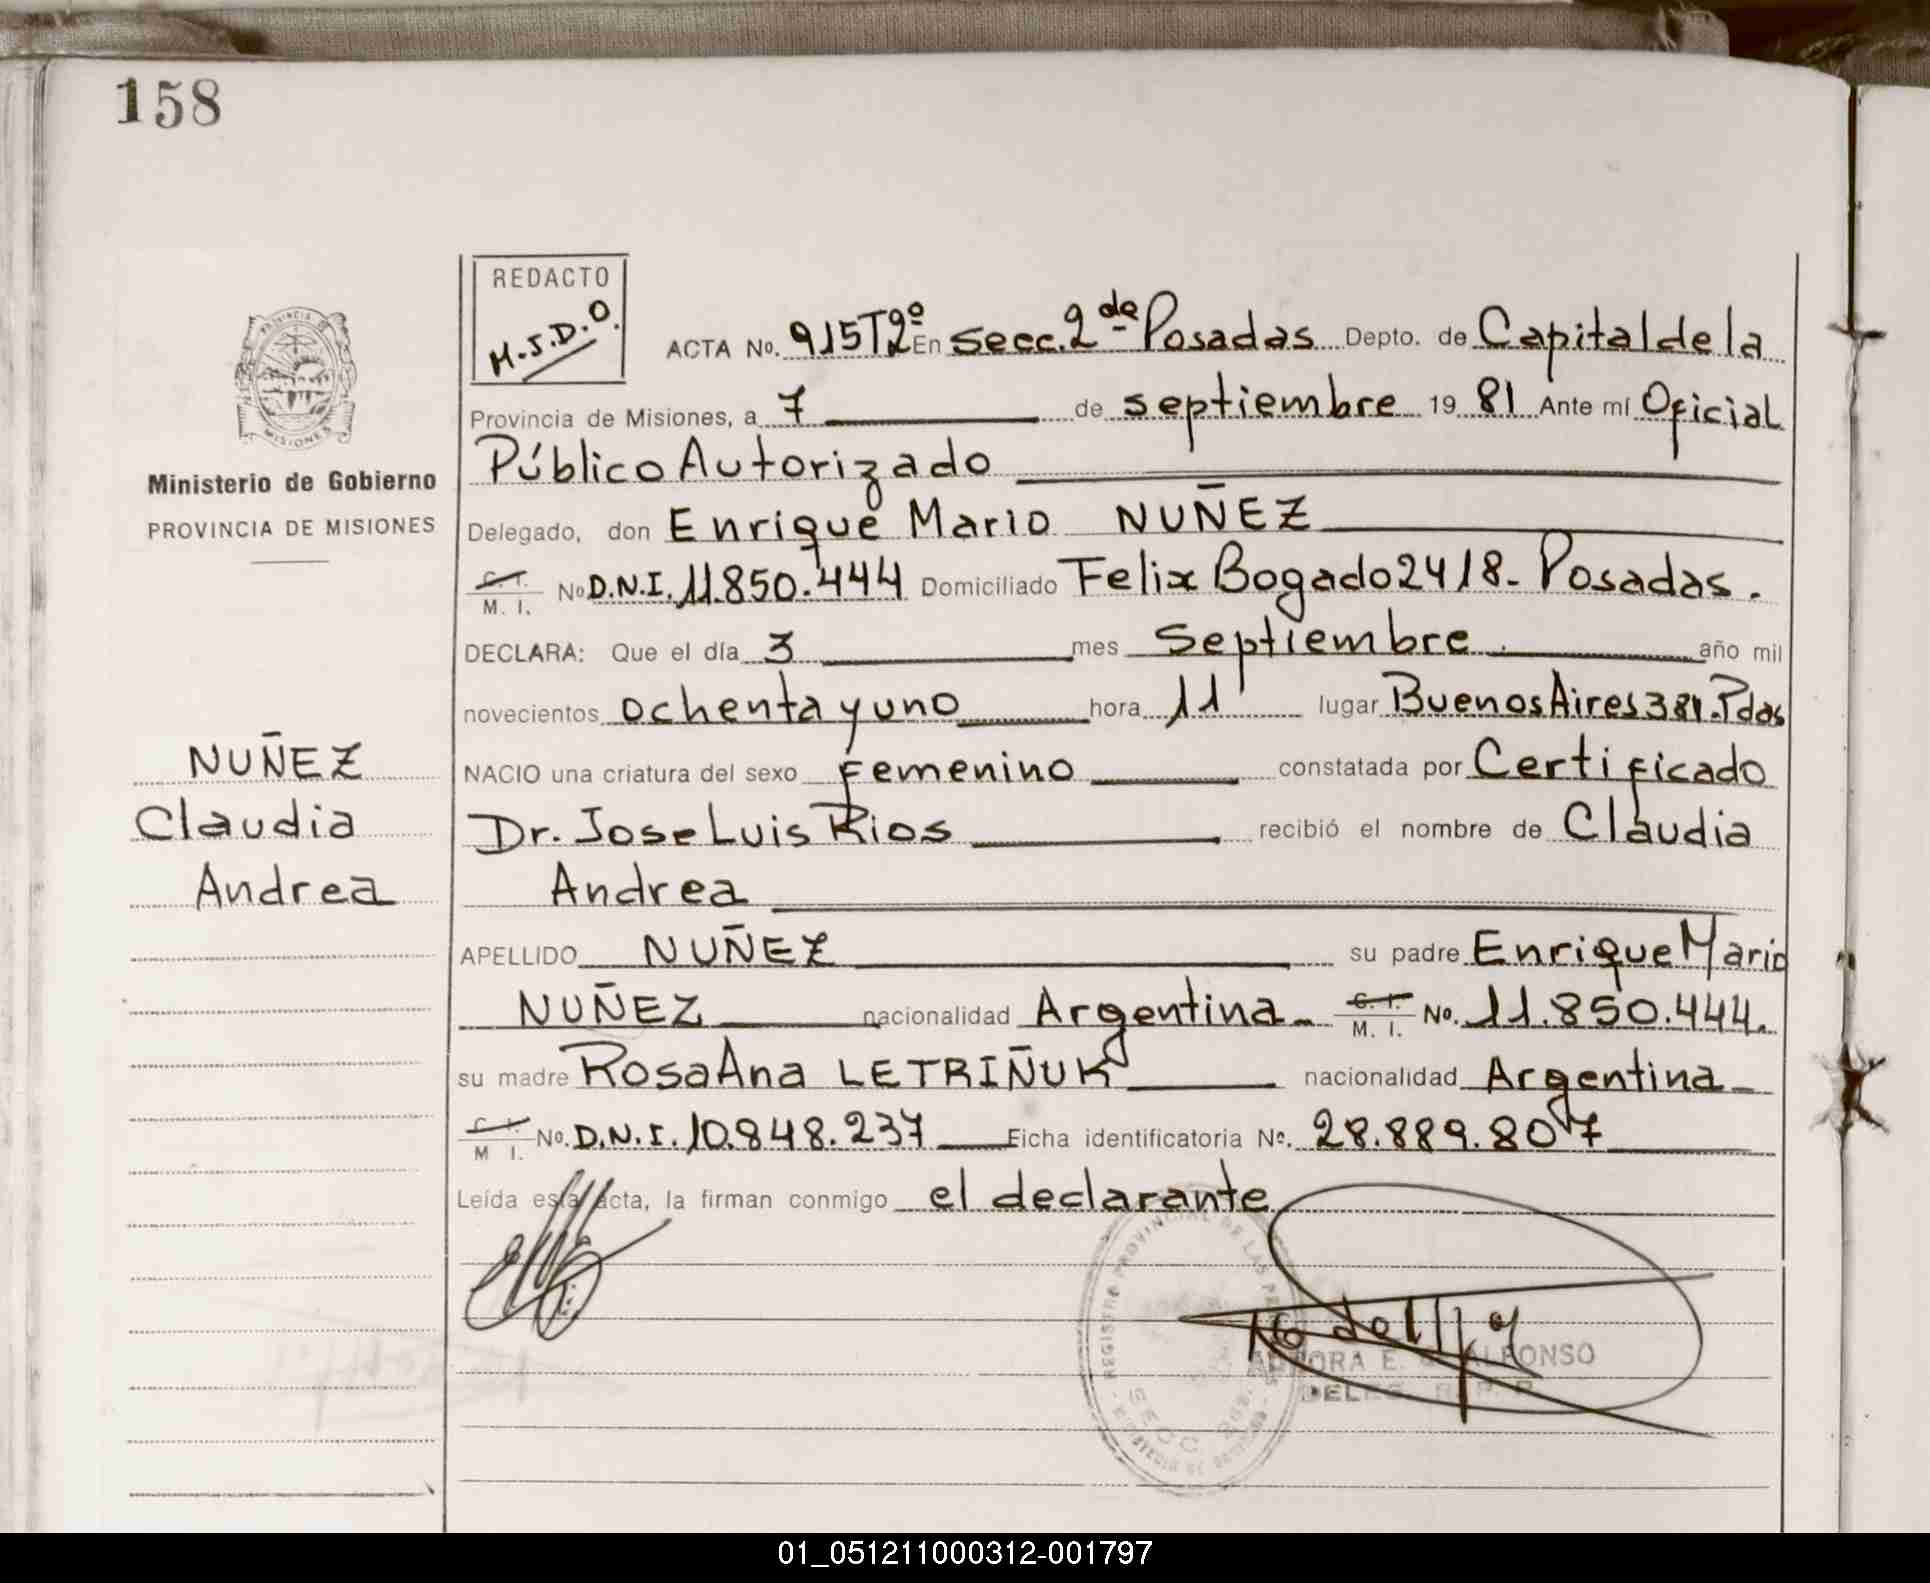 158
REDACTO
M.J.D.O.
PROVINCIA DE
MISIONES
Ministerio de Gobierno
PROVINCIA DE MISIONES
NUÑEZ
Claudia
Andrea
ACTA No. 915T2º En secc.2da Posadas Depto. de Capital de la
Provincia de Misiones, a 7 de septiembre 1981 Ante mí Oficial
Público Autorizado
Delegado, don Enrique Mario NUÑEZ
C. I. / M. I. No D.N.I. 11.850.444 Domiciliado Felix Bogado 2418- Posadas.
DECLARA: Que el día 3 mes Septiembre año mil
novecientos ochenta y uno hora 11 lugar Buenos Aires 381. Pdas
NACIO una criatura del sexo Femenino constatada por Certificado
Dr. Jose Luis Rios recibió el nombre de Claudia
Andrea
APELLIDO NUÑEZ su padre Enrique Mario
NUÑEZ nacionalidad Argentina C. I. / M. I. No. 11.850.444.
su madre Rosa Ana LETRIÑUK nacionalidad Argentina
C. I. / M I. No. D.N.I. 10.848.237 Ficha identificatoria No. 28.889.807
Leída esta acta, la firman conmigo el declarante
REGISTRO PROVINCIAL DE LAS
SECC.
AURORA E. ALFONSO
DELEG. R. P. P.
01_051211000312-001797